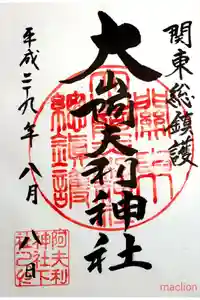 関東総鎮護
大山阿夫利神社
平成二十九年 八月 八日
關東
總鎮護
阿夫利
神社下
社之印
maclion